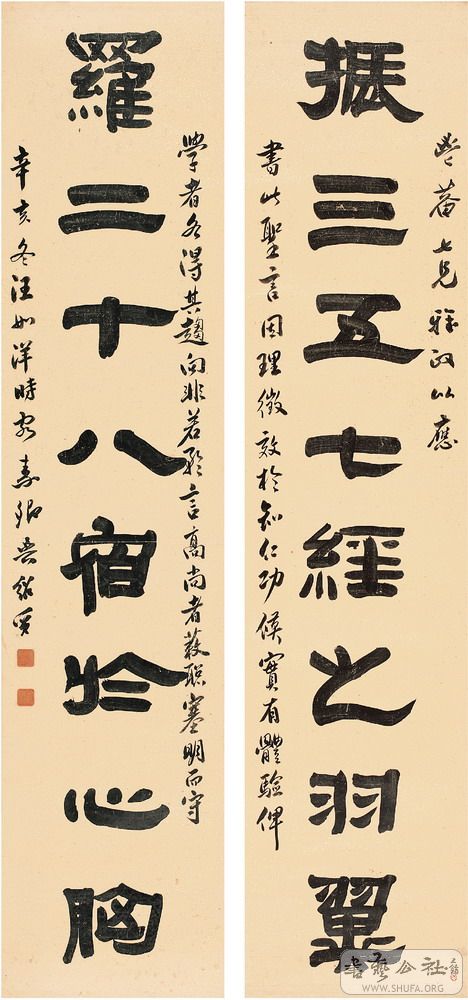 振三五七經之羽翼
羅二十八宿於心胸
七兄雅政以應
書此聖言因理徵效於知仁功候實有體驗俾
學者各得其趨向非若聆言高尚者蔽聰塞明而守
辛亥冬汪如洋時客
書艺公社
WWW.SHUFA.ORG